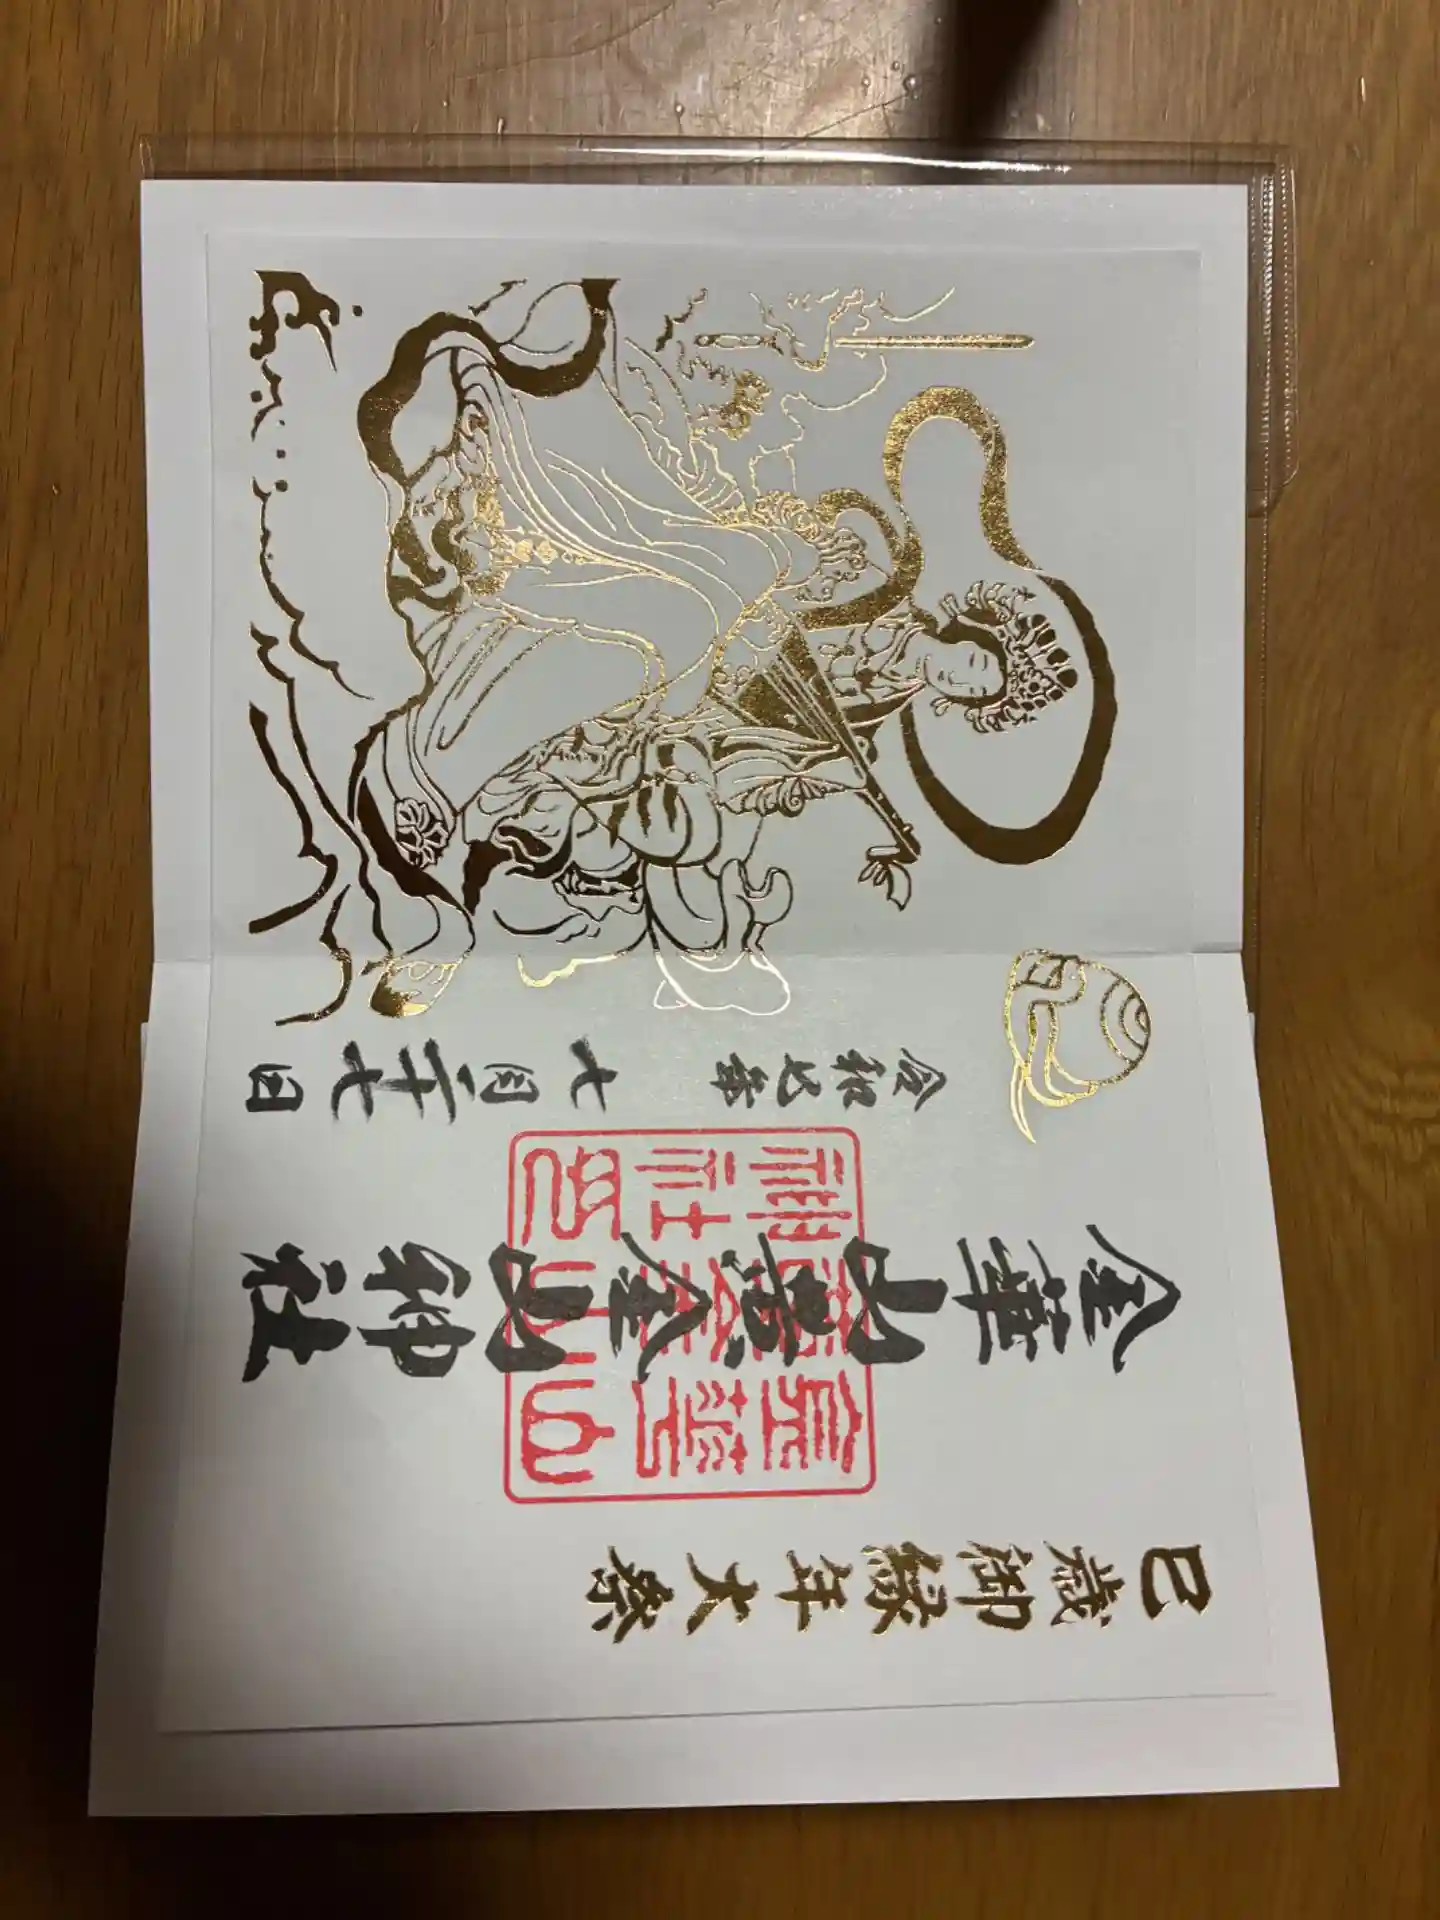 巳歳御縁年大祭
金華山黄金山神社
金華山
黄金山
神社印
令和七年七月二十七日